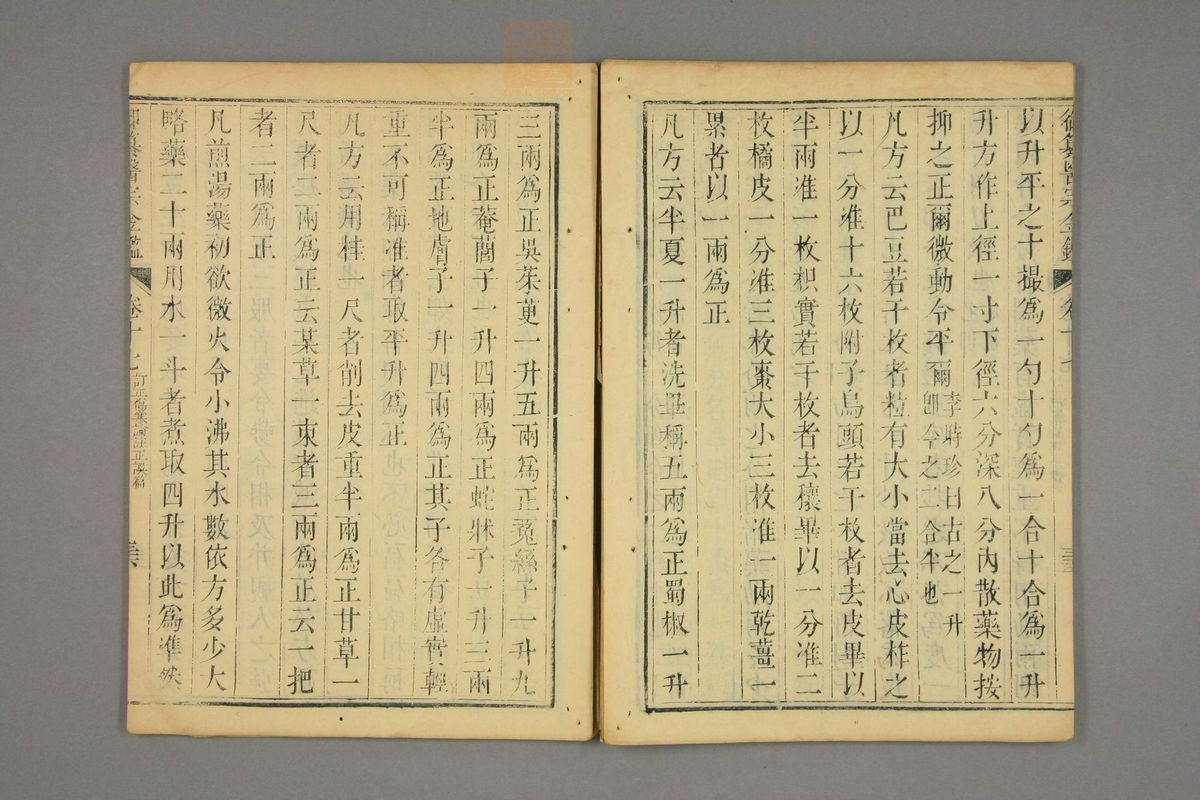 御纂醫宗金鑑 卷十七
以升平之十撮爲一勺十勺爲一合十合爲一升
升方作上徑一寸下徑六分深八分內散藥物按
抑之正爾微動令平爾李時珍曰古之一升即今之二合半也
凡方云巴豆若干枚者粒有大小當去心皮柞之
以一分准十六枚附子烏頭若干枚者去皮畢以
半兩准一枚枳實若干枚者去穰畢以一分准二
枚橘皮一分准三枚棗大小三枚准一兩乾薑一
累者以一兩爲正
凡方云半夏一升者洗畢稱五兩爲正蜀椒一升
三兩爲正吳茱萸一升五兩爲正菟絲子一升九
兩爲正菴䕡子一升四兩爲正蛇牀子一升三兩
半爲正地膚子一升四兩爲正其子各有虛實輕
重不可稱准者取平升爲正
凡方云用桂一尺者削去皮重半兩爲正甘草一
尺者二兩爲正云某草一束者三兩爲正云一把
者二兩爲正
凡煎湯藥初欲微火令小沸其水數依方多少大
略藥二十兩用水一斗者煮取四升以此爲準然
御纂醫宗金鑑 卷十七 訂正傷寒論註正誤篇